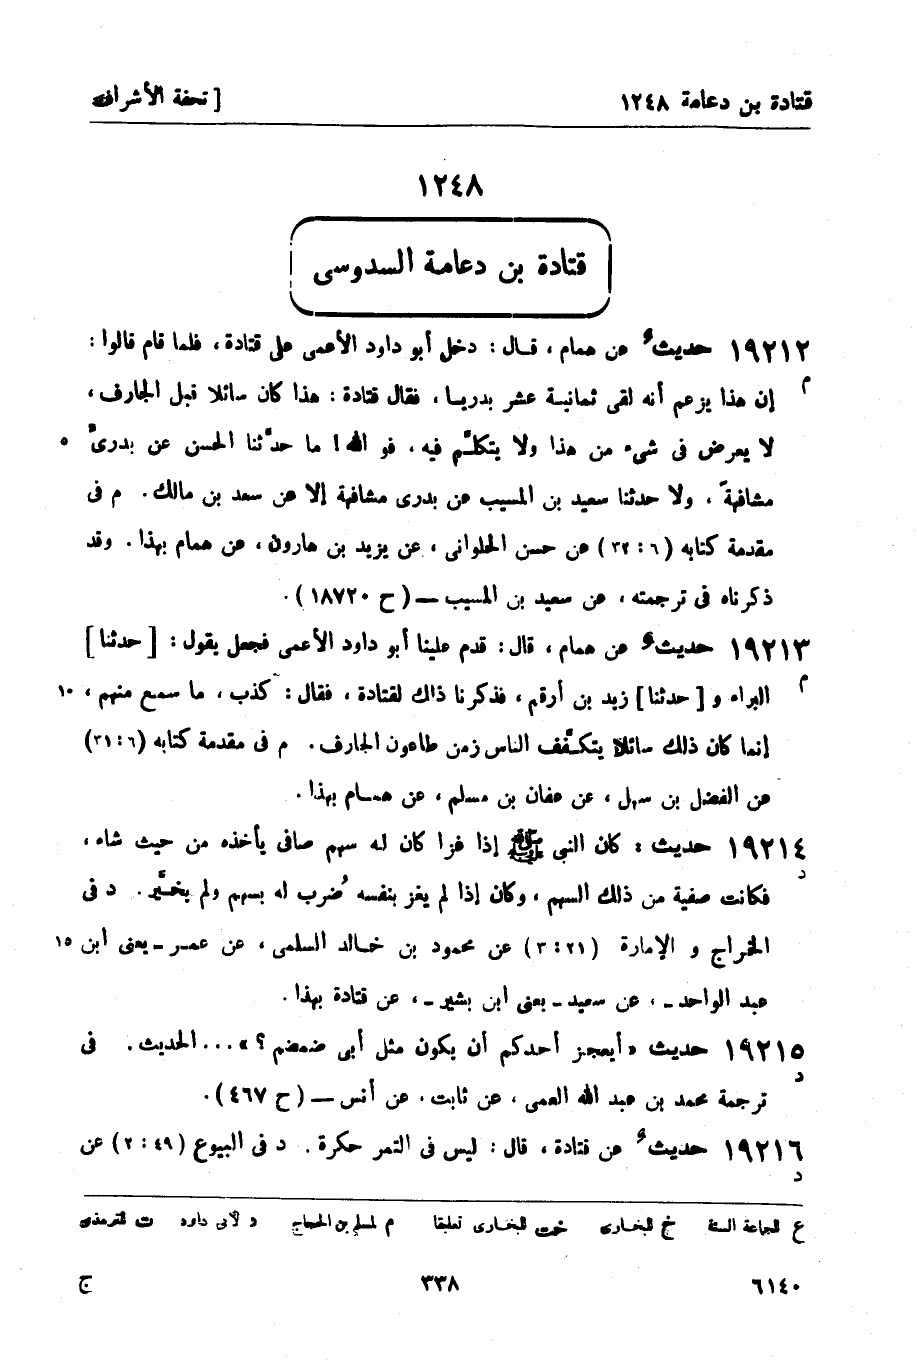 قتادة بن دعامة ١٢٤٨
[ تحفة الأشراف
١٢٤٨
قتادة بن دعامة السدوسى
١٩٢١٢ حديثٌ عن همام ، قال : دخل أبو داود الأعمى على قتادة ، فلما قام قالوا :
م
إن هذا يزعم أنه لقى ثمانية عشر بدريا ، فقال قتادة : هذا كان سائلا قبل الجارف ،
لا يعرض فى شىء من هذا ولا يتكلّم فيه ، فو الله! ما حدّثنا الحسن عن بدرىّ ٥
مشافهةً ، ولا حدثنا سعيد بن المسيب عن بدرى مشافهة إلا عن سعد بن مالك . م فى
مقدمة كتابه (٦ : ٣٢) عن حسن الحلوانى ، عن يزيد بن هارون ، عن همام بهذا . وقد
ذكرناه فى ترجمته ، عن سعيد بن المسيب — ( ح ١٨٧٢٠ ).
١٩٢١٣ حديثٌ عن همام ، قال : قدم علينا أبو داود الأعمى فجعل يقول : [ حدثنا ]
م
البراء و [ حدثنا ] زيد بن أرقم ، فذكرنا ذاك لقتادة ، فقال : كذب ، ما سمع منهم ، ١٠
إنما كان ذلك سائلا يتكفّف الناس زمن طاعون الجارف . م فى مقدمة كتابه (٦ : ٣١)
عن الفضل بن سهل ، عن عفان بن مسلم ، عن همام بهذا .
١٩٢١٤ حديث : كان النبى ﷺ إذا غزا كان له سهم صافى يأخذه من حيث شاء ،
د
فكانت صفية من ذلك السهم ، وكان إذا لم يغز بنفسه ضُرب له بسهم ولم يخيَّر . د فى
الخراج و الإمارة (٢١ : ٣) عن محمود بن خالد السلمى ، عن عمر ـ يعنى ابن ١٥
عبد الواحد ـ ، عن سعيد ـ يعنى ابن بشير ـ ، عن قتادة بهذا .
١٩٢١٥ حديث « أيعجز أحدكم أن يكون مثل أبى ضمضم ؟ » ... الحديث . فى
د
ترجمة محمد بن عبد الله العمى ، عن ثابت ، عن أنس — ( ح ٤٦٧ ).
١٩٢١٦ حديثٌ عن قتادة ، قال : ليس فى التمر حكرة . د فى البيوع (٤٩ : ٢) عن
د
ع للجماعة الستة خ للبخارى خت للبخارى تعليقا م لمسلم بن الحجاج د لأبى داود ت للترمذى
٦١٤٠
٣٣٨
ج